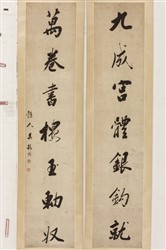 九成宮體銀鉤就
萬卷書樓玉勒收